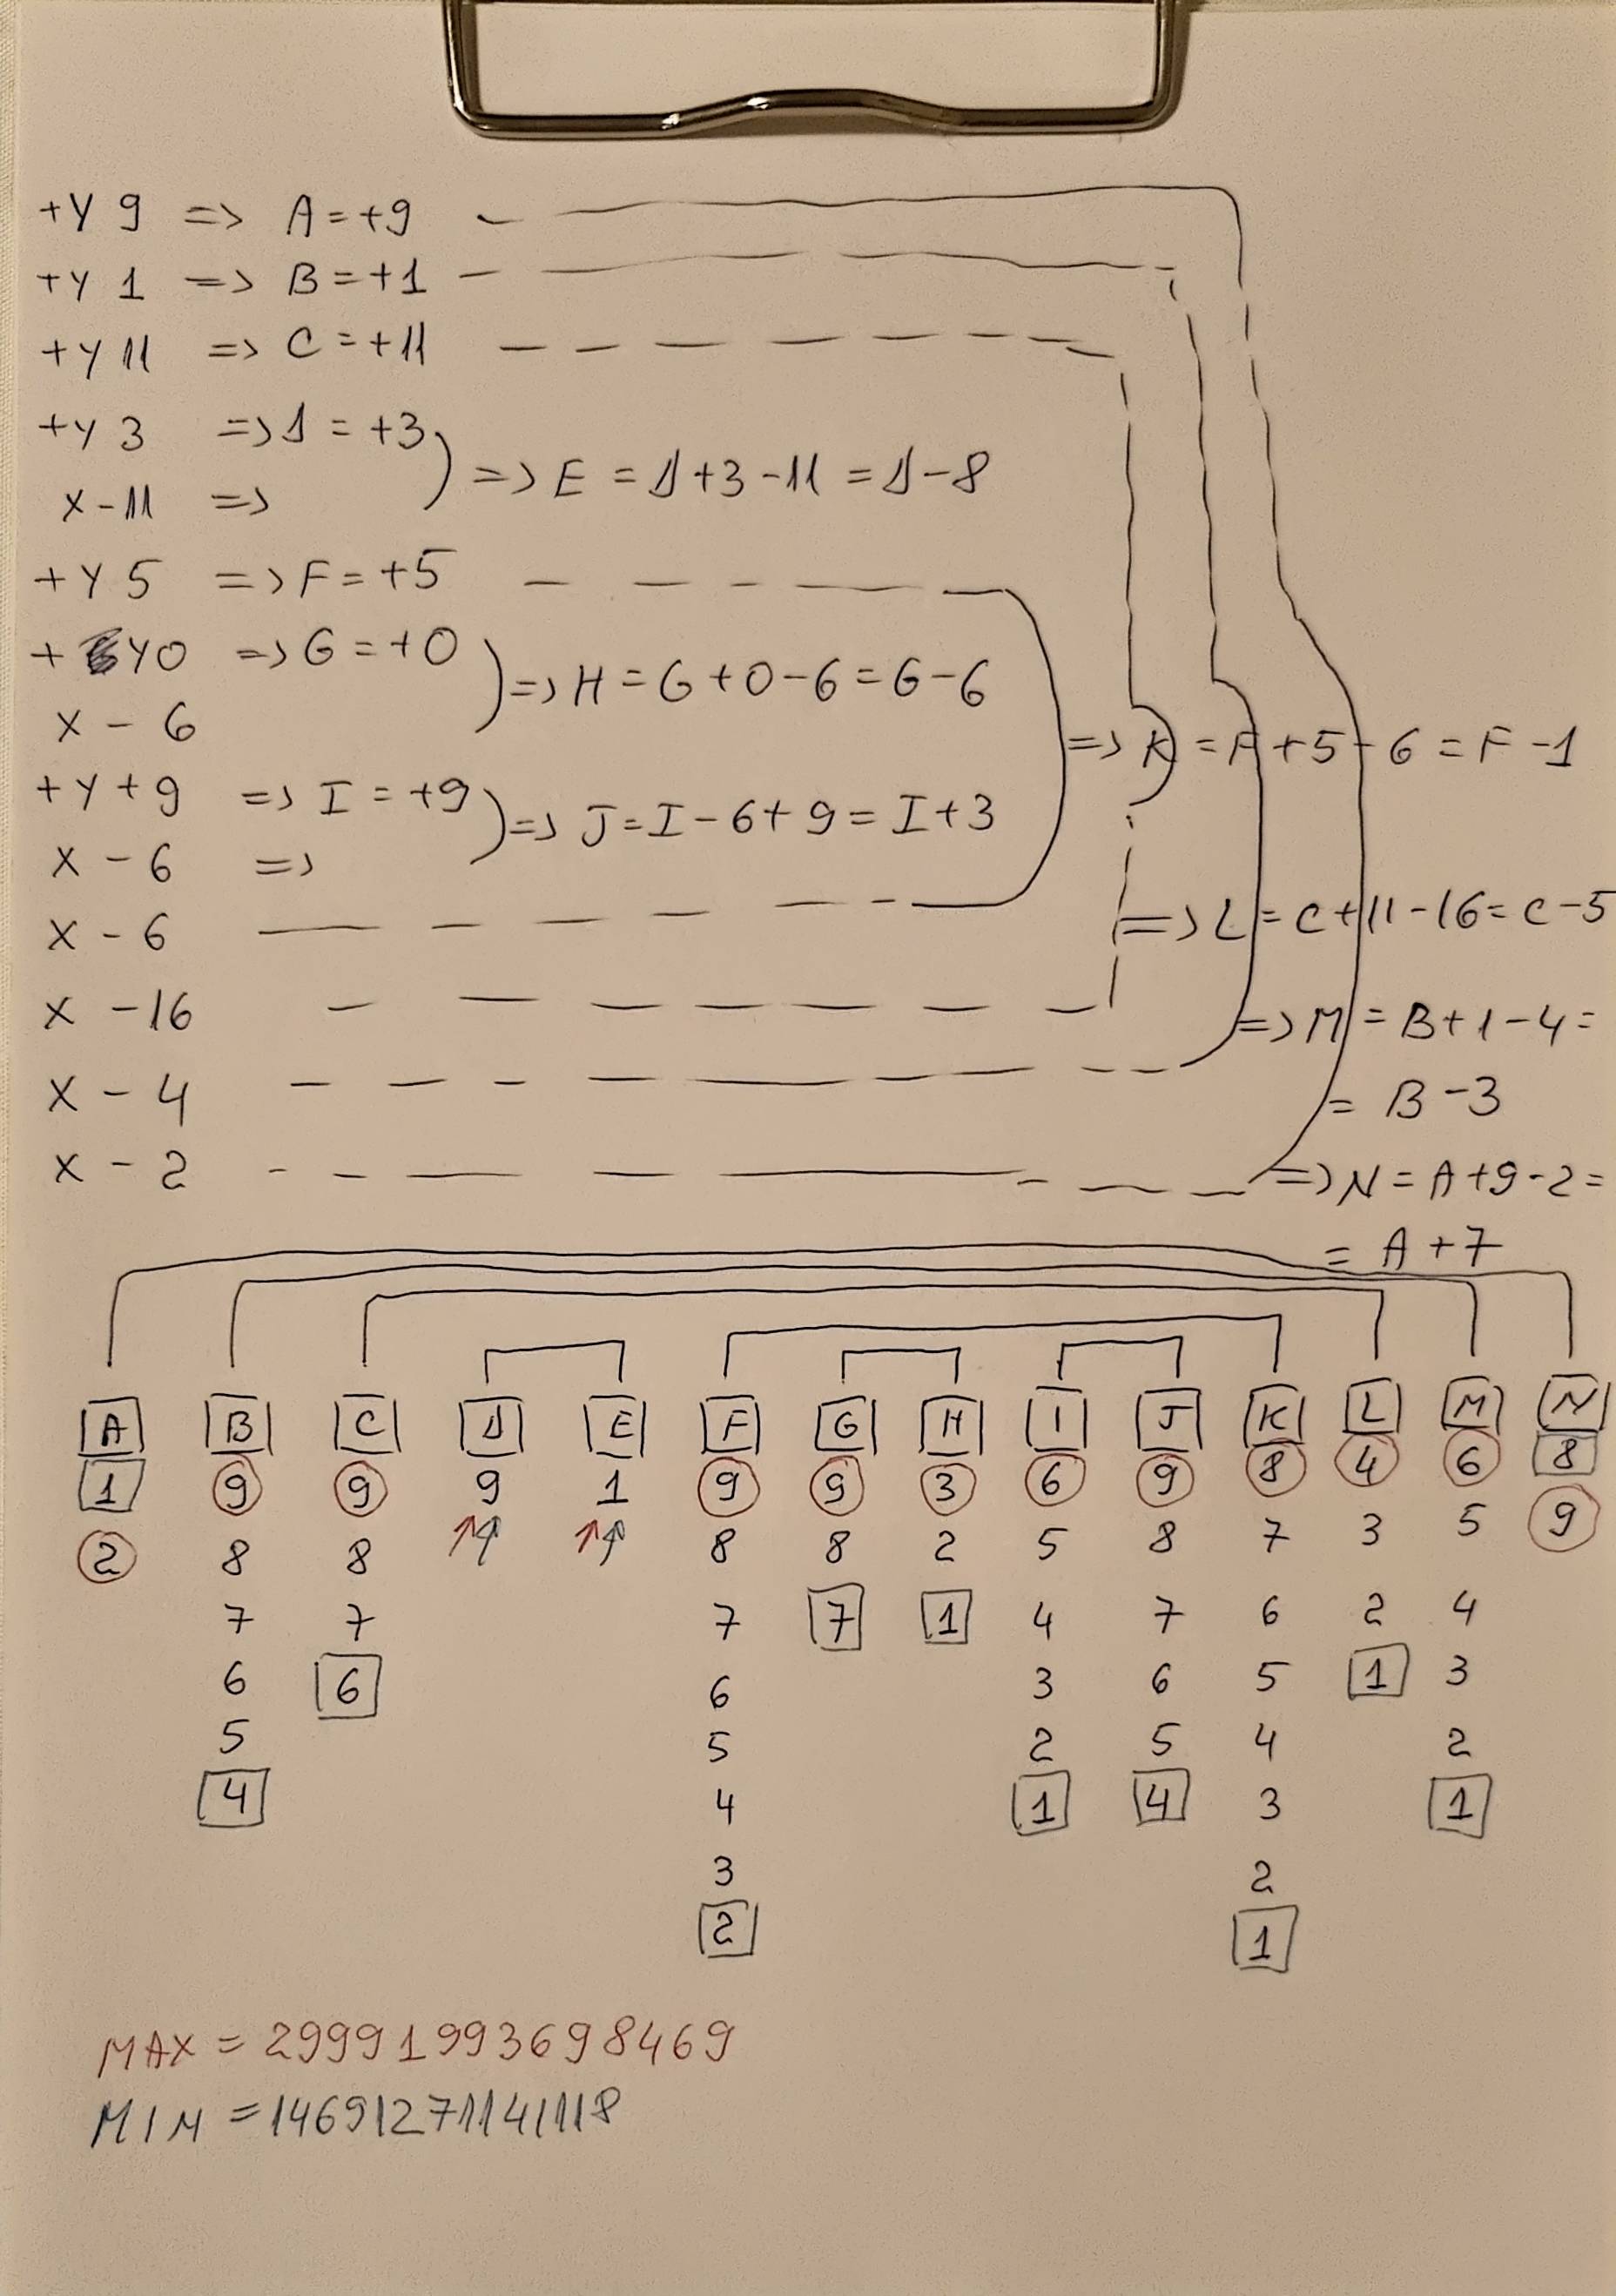 +Y 9 => A = +9
+Y 1 => B = +1
+Y 11 => C = +11
+Y 3 => D = +3
X - 11 => => E = D + 3 - 11 = D - 8
+Y 5 => F = +5
+ Y0 => G = +0
=> H = G + 0 - 6 = G - 6
X - 6
=> K = F + 5 - 6 = F - 1
+Y + 9 => I = +9
=> J = I - 6 + 9 = I + 3
X - 6 =>
X - 6
=> L = C + 11 - 16 = C - 5
X - 16
=> M = B + 1 - 4 =
X - 4
= B - 3
X - 2
=> N = A + 9 - 2 =
= A + 7
A B C D E F G H I J K L M N
1 9 9 9 1 9 9 3 6 9 8 4 6 8
2 8 8 ↑↑ ↑↑ 8 8 2 5 8 7 3 5 9
7 7 7 7 1 4 7 6 2 4
6 6 6 3 6 5 1 3
5 5 2 5 4 2
4 4 1 4 3 1
3 2
2 1
MAX = 29991993698469
MIN = 14691271141118